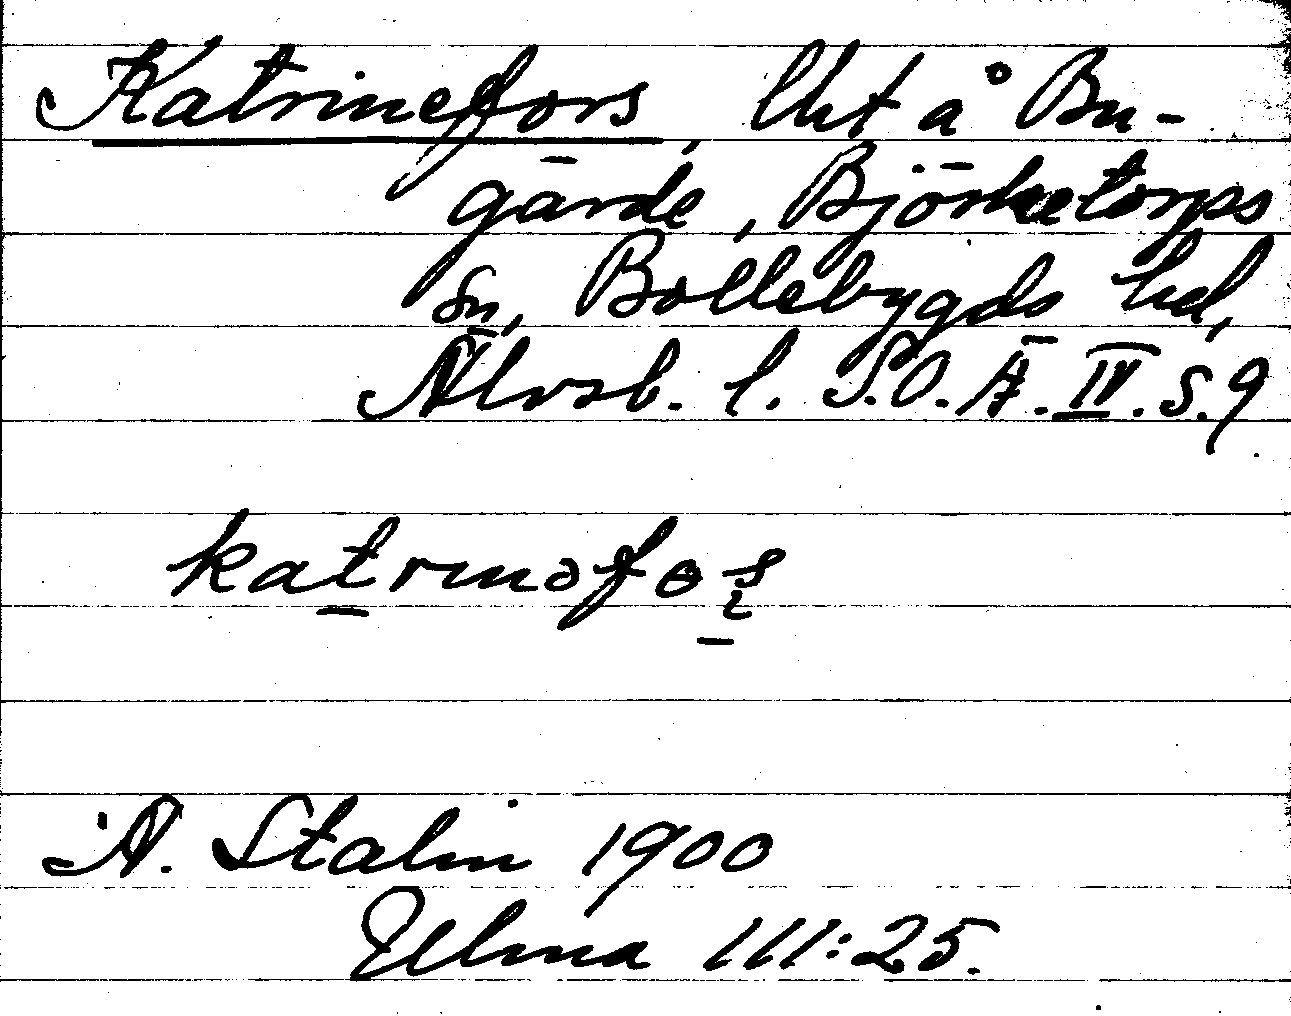 Katrinefors, lht å Bu-
gärde, Björketorps
sn, Bollebygds hd,
Älvsb. l. S.O.Ä. IV. s. 9
katrinəfɵs
A. Stalin 1900
Ulma 111:25.